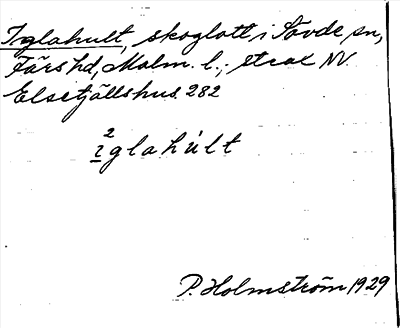 Iglahult, skoglott i Sövde sn,
Färs hd, Malm. l.; strax NV
Elsetjällshus. 282
2
iglahúlt
P. Holmström 1929